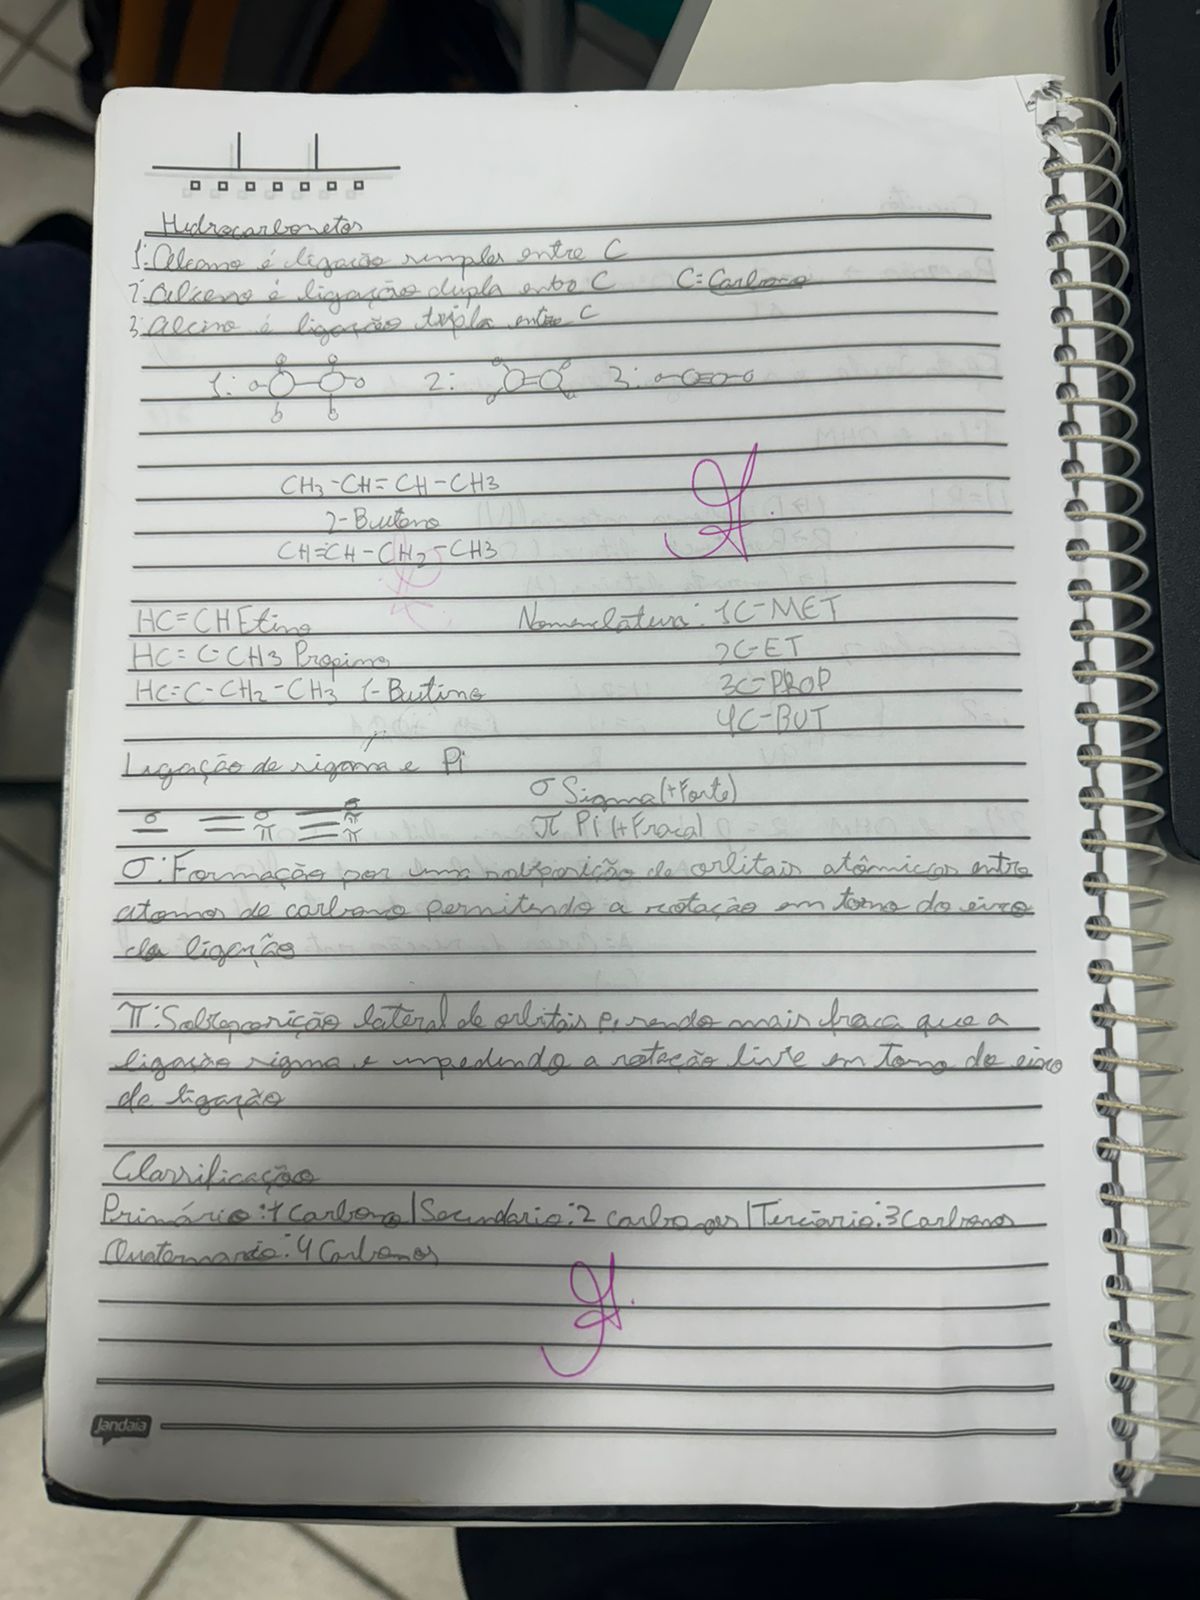 Hidrocarbonetos
1: Alcano é ligação simples entre C
2: Alceno é ligação dupla entre C C=Carbono
3: Alcino é ligação tripla entre C
1: 2: 3:
CH3-CH=CH-CH3
2-Buteno
CH=CH-CH2-CH3
HC=CH Etino Nomenclatura: 1C-MET
HC=C-CH3 Propino 2C-ET
HC=C-CH2-CH3 1-Butino 3C-PROP
4C-BUT
Ligação de sigma e Pi
σ Sigma (+Forte)
σ σ π σ π π π Pi (+Fraca)
σ: Formação por uma sobreposição de orbitais atômicos entre
atomos de carbono permitindo a rotação em torno do eixo
da ligação
π: Sobreposição lateral de orbitais p, sendo mais fraca que a
ligação sigma e impedindo a rotação livre em torno do eixo
de ligação
Classificação
Primário: 1 Carbono | Secundario: 2 carbonos | Terciario: 3 Carbonos
Quaternario: 4 Carbonos
jandaia